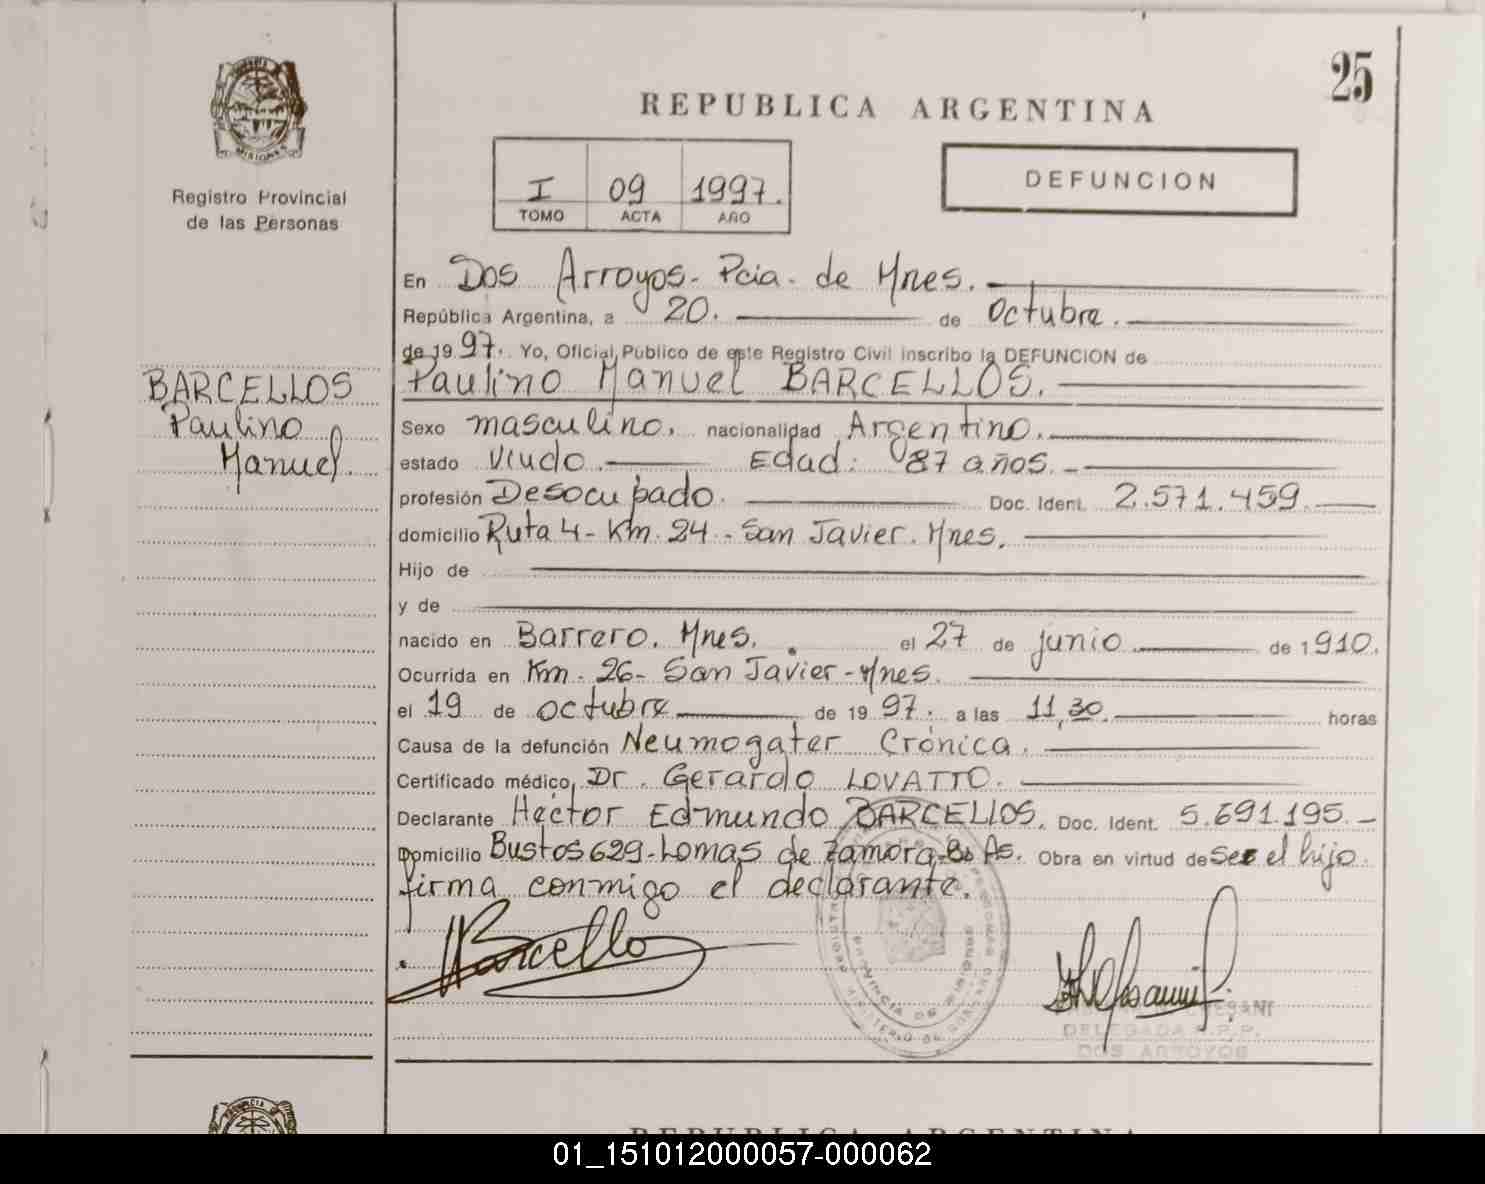 25
REPUBLICA ARGENTINA
I 09 1997.
TOMO ACTA AÑO
DEFUNCION
MISIONES
Registro Provincial
de las Personas
En Dos Arroyos - Pcia - de Mnes.
República Argentina, a 20. de octubre.
de 1997. Yo, Oficial Público de este Registro Civil inscribo la DEFUNCION de
BARCELLOS
Paulino
Manuel.
Paulino Manuel BARCELLOS.
Sexo masculino. nacionalidad Argentino.
estado Viudo. Edad: 87 años.
profesión Desocupado. Doc. Ident. 2.571.459.
domicilio Ruta 4 - Km. 24 - San Javier. Mnes.
Hijo de
y de
nacido en Barrero. Mnes. el 27 de junio de 1910.
Ocurrida en Km - 26 - San Javier - Mnes.
el 19 de octubre de 1997. a las 11,30. horas
Causa de la defunción Neumogater Crónica.
Certificado médico, Dr. Gerardo LOVATTO.
Declarante Hector Edmundo BARCELLOS. Doc. Ident. 5.691.195.
Domicilio Bustos 629 - Lomas de Zamora - Bs As. Obra en virtud de ser el hijo.
firma conmigo el declarante.
Barcello
PROVINCIA DE MISIONES
MINISTERIO DE
DELEGADA R.P.P.
DOS ARROYOS
PROVINCIA
REPUBLICA ARGENTINA
01_151012000057-000062